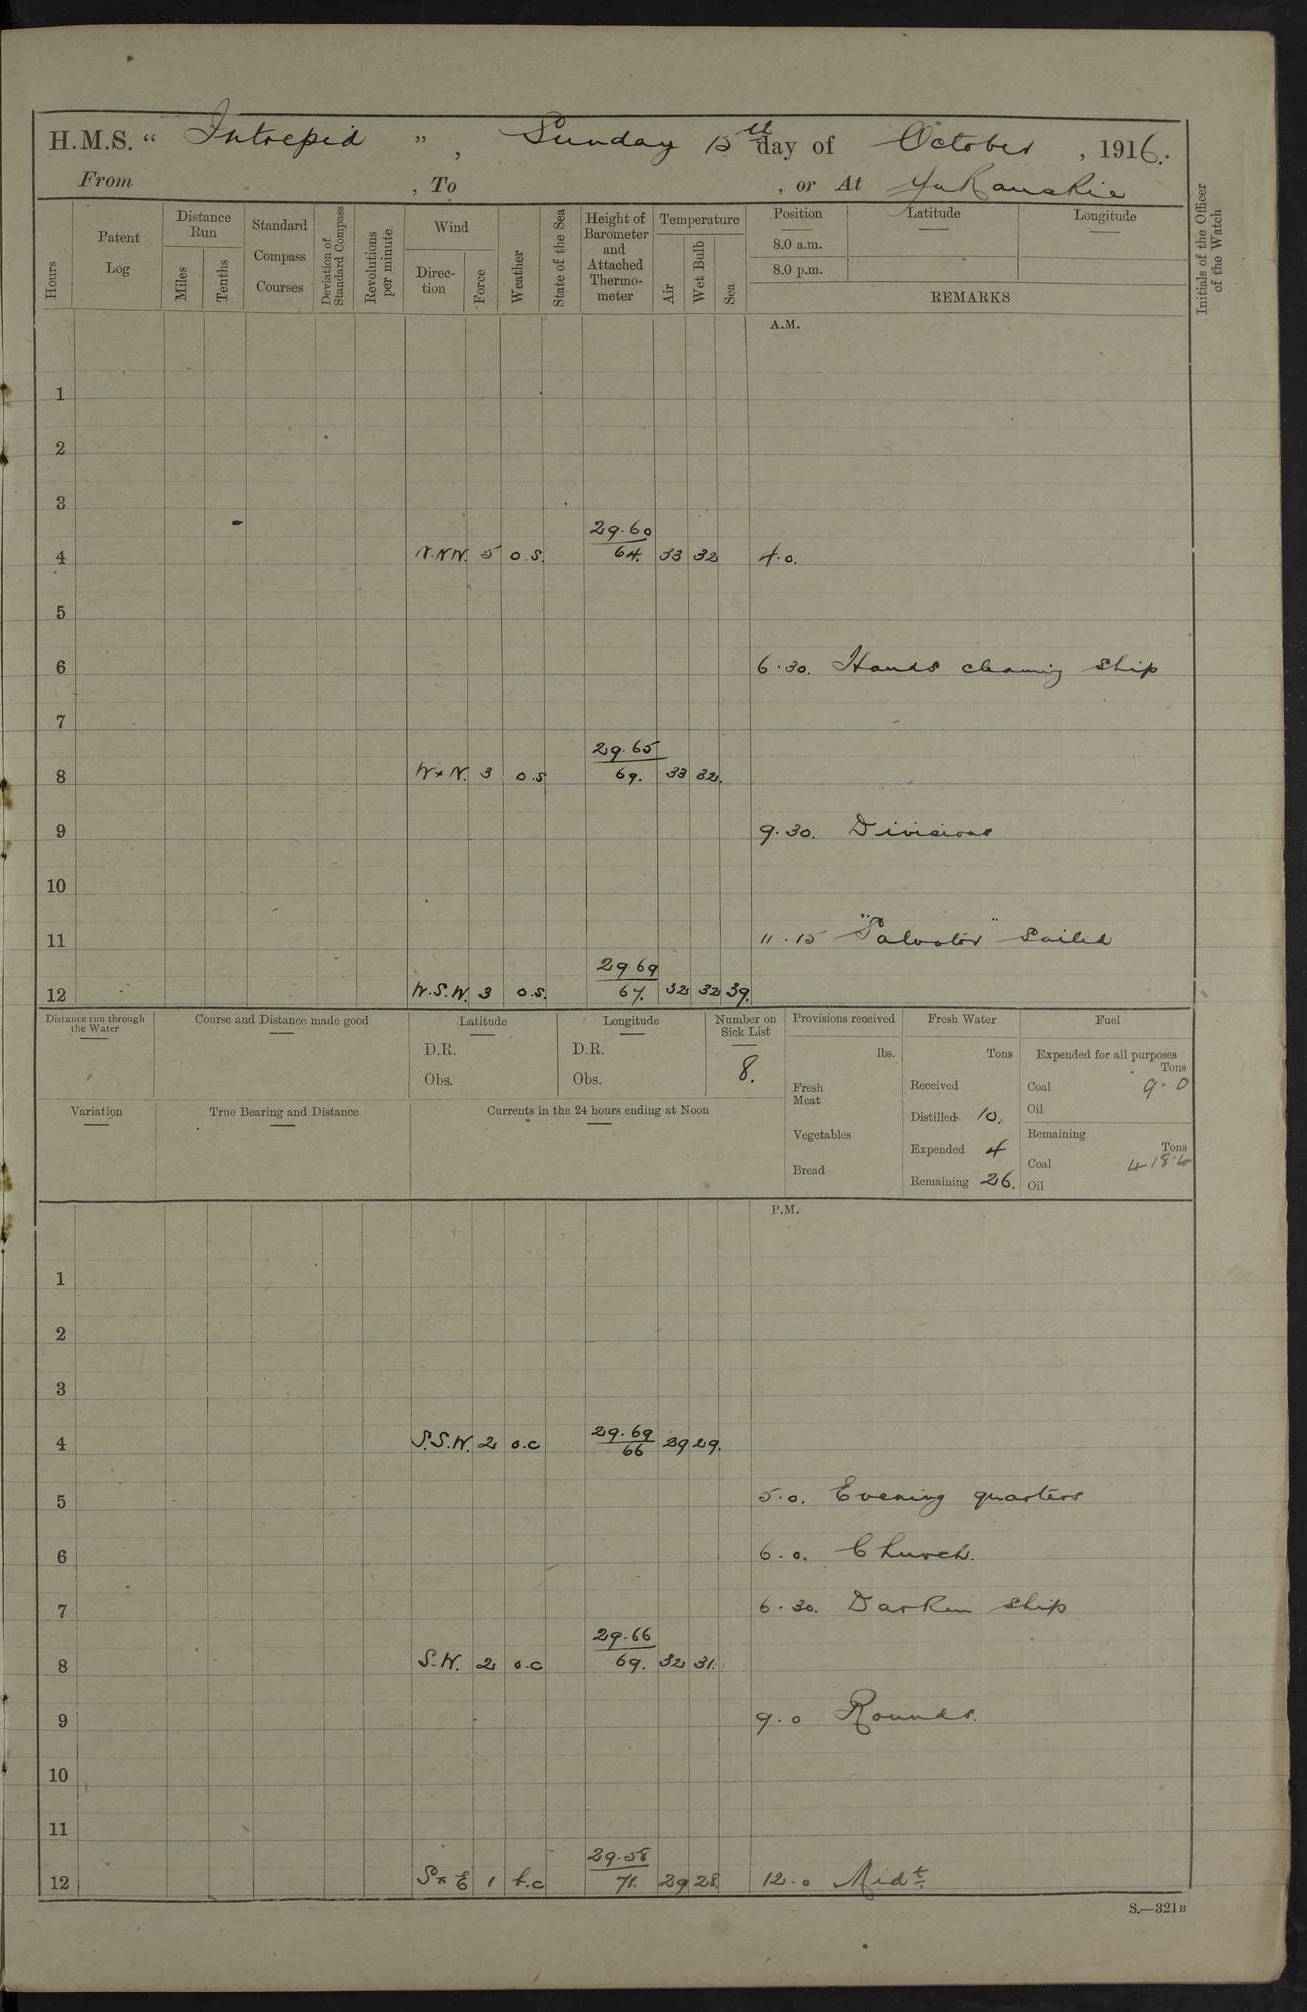 H.M.S. “ Intrepid ” , Sunday 15th day of October , 1916.
From , To , or At Yukanskie
Hours
Patent Log
Distance Run
Miles
Tenths
Standard Compass Courses
Deviation of Standard Compass
Revolutions per minute
Wind
Direction
Force
Weather
State of the Sea
Height of Barometer and Attached Thermometer
Temperature
Air
Wet Bulb
Sea
Position
8.0 a.m.
8.0 p.m.
Latitude
Longitude
REMARKS
Initials of the Officer of the Watch
A.M.
1
2
3
29.60
4 N.N.W. 5 o.s. 64. 33 32 4.0.
5
6 6.30. Hands cleaning ship
7
29.65
8 W x N. 3 o.s 69. 33 32.
9 9.30. Divisions
10
11 11.15 "Salvator" sailed
29.69
12 W.S.W. 3 o.s. 67. 32 32 39.
Distance run through the Water
Course and Distance made good
Latitude
D.R.
Obs.
Longitude
D.R.
Obs.
Number on Sick List
8.
Provisions received
lbs.
Fresh Meat
Vegetables
Bread
Fresh Water
Tons
Received
Distilled 10.
Expended 4
Remaining 26.
Fuel
Expended for all purposes
Tons
Coal 9.0
Oil
Remaining
Tons
Coal 418.4
Oil
Variation
True Bearing and Distance
Currents in the 24 hours ending at Noon
P.M.
1
2
3
29.69
4 S.S.W. 2 o.c 66 29 29.
5 5.0. Evening quarters
6 6.0. Church.
7 6.30. Darken ship
29.66
8 S.W. 2 o.c 69. 32 31.
9 9.0 Rounds.
10
11
29.58
12 S x E 1 b.c 71. 29 28. 12.0 Midt.
S.—321B